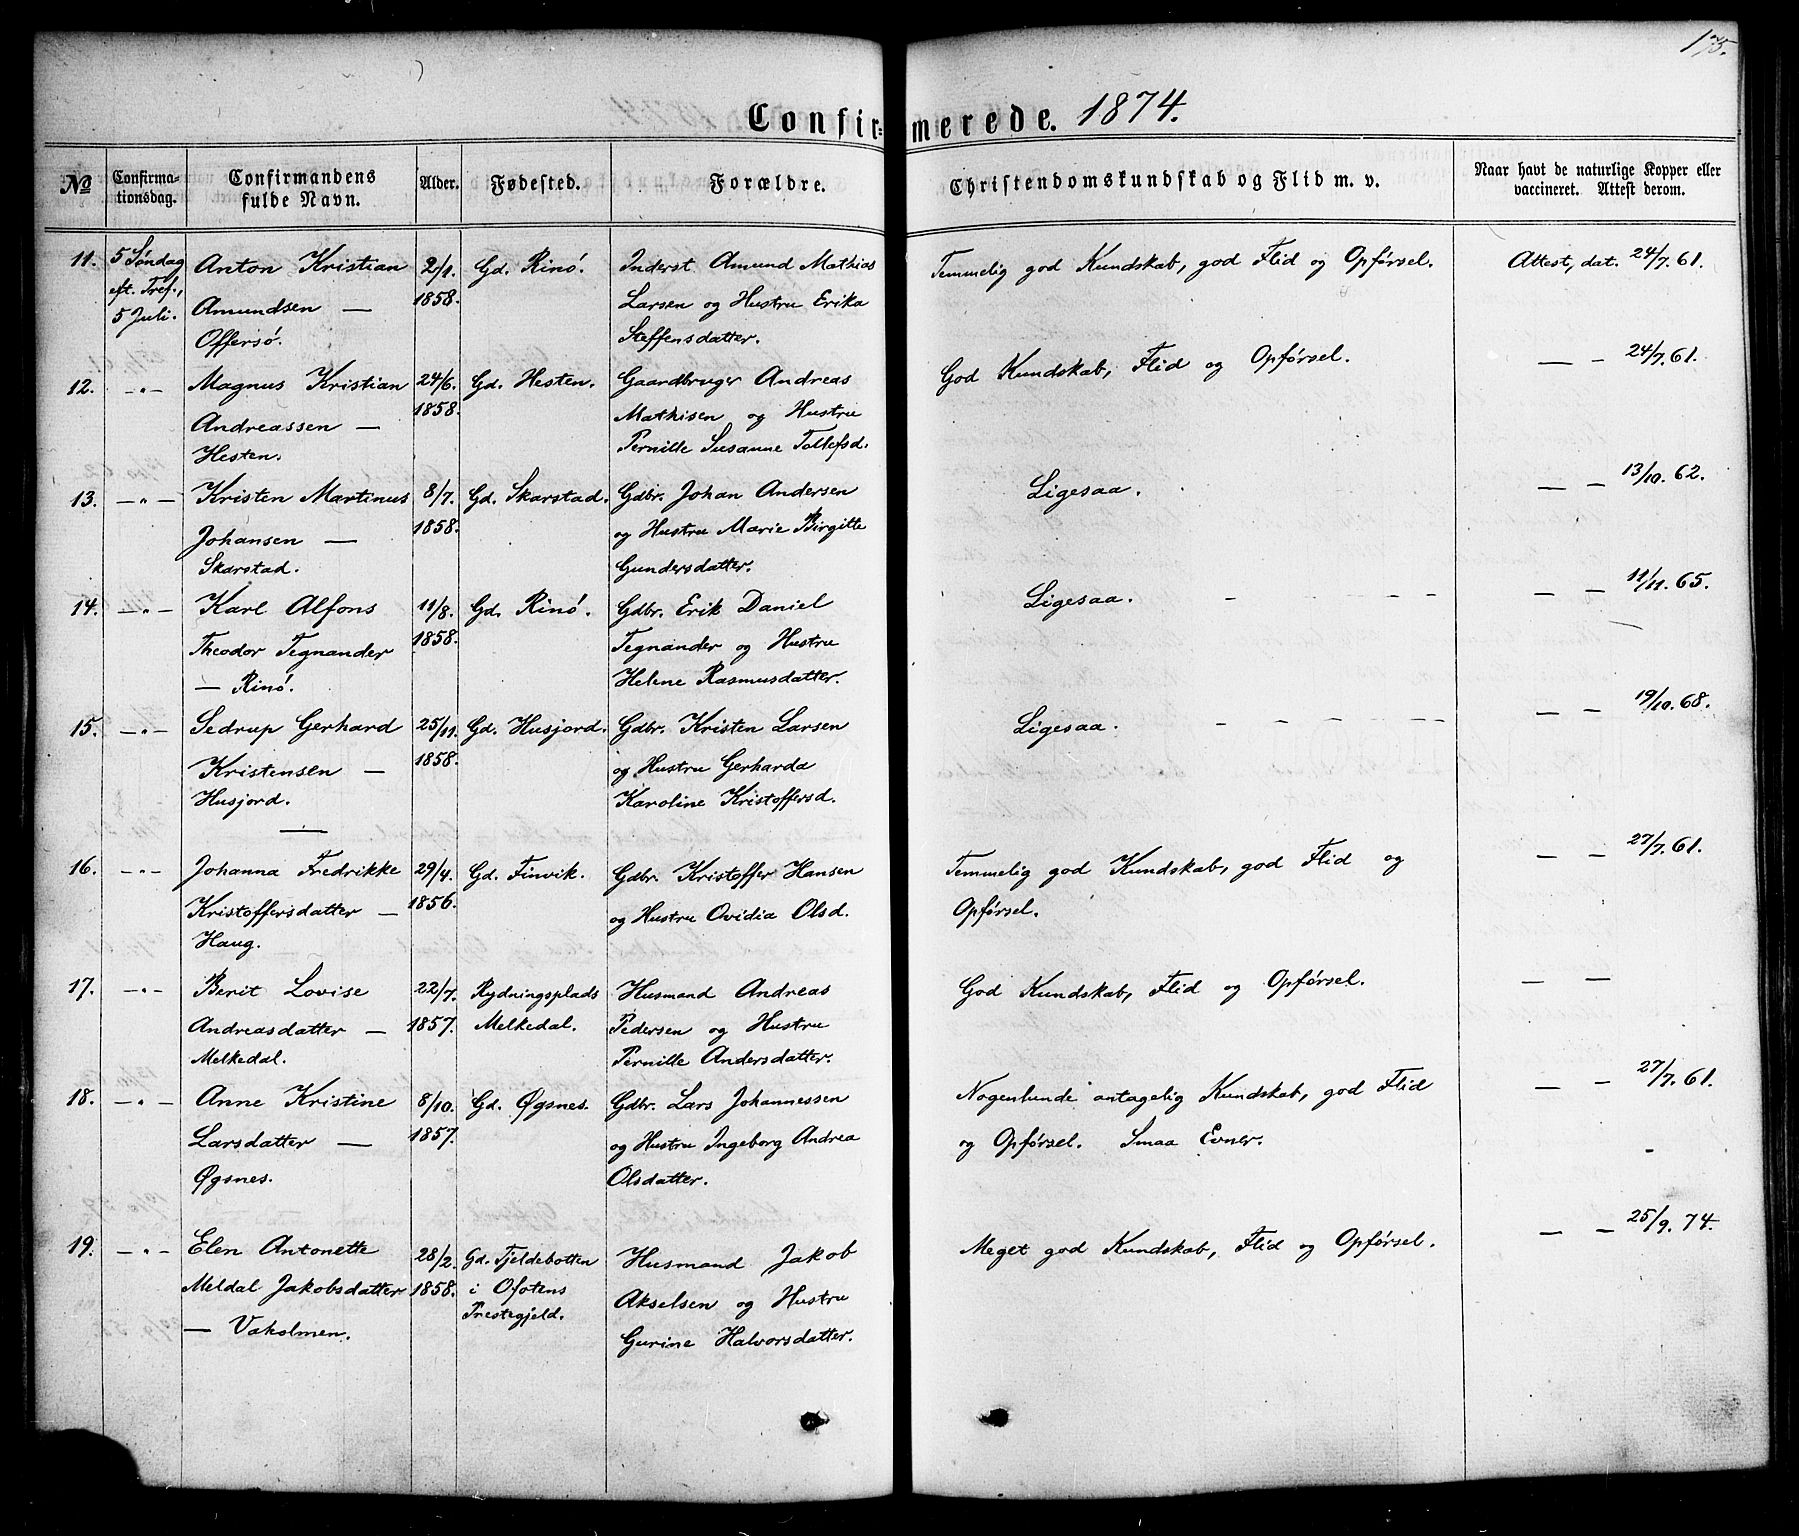 175.
Confirmerede. 1874.
No
Confirma-
tionsdag.
Confirmandens
fulde Navn.
Alder.
Fødested.
Forældre.
Christendomskundskab og Flid m. v.
Naar havt de naturlige Kopper eller
vaccineret. Attest derom.
11. 5 Søndag Anton Kristian 2/1. Gd. Rinö. Inderst Amund Mathias Temmelig god Kundskab, god Flid og Opförsel. Attest, dat. 24/7. 61.
eft. Tref., Amundsen — 1858. Larsen og Hustru Erika
5 Juli. Offersö. Steffensdatter.
12. –„– Magnus Kristian 24/6. Gd. Hesten. Gaardbruger Andreas God Kundskab, Flid og Opförsel. — – 24/7. 61.
Andreassen — 1858. Mathisen og Hustru
Hesten. Pernille Susanne Tollefsd.
13. –„– Kristen Martinus 8/7. Gd. Skarstad. Gdbr. Johan Andersen Ligesaa. — – 13/10. 62.
Johansen — 1858. og Hustru Marie Birgitte
Skarstad. Gundersdatter.
14. –„– Karl Alfons 11/8. Gd. Rinö. Gdbr. Erik Daniel Ligesaa. — – 11/11. 65.
Theodor Tegnander 1858. Tegnander og Hustru
— Rinö. Helene Rasmusdatter.
15. –„– Sedrup Gerhard 25/11. Gd. Husjord. Gdbr. Kristen Larsen Ligesaa. — – 19/10. 68.
Kristensen — 1858. og Hustru Gerharda
Husjord. Karoline Kristoffersd.
16. –„– Johanna Fredrikke 29/4. Gd. Finvik. Gdbr. Kristoffer Hansen Temmelig god Kundskab, god Flid og — – 27/7. 61.
Kristoffersdatter — 1856. og Hustru Ovidia Olsd. Opförsel.
Haug.
17. –„– Berit Lovise 22/7. Rydningsplads Husmand Andreas God Kundskab, Flid og Opförsel. — —
Andreasdatter — 1857. Melkedal. Pedersen og Hustru
Melkedal. Pernille Andersdatter.
18. –„– Anne Kristine 8/10. Gd. Øgsnes. Gdbr. Lars Johannessen Nogenlunde antagelig Kundskab, god Flid — – 27/7. 61.
Larsdatter — 1857. og Hustru Ingeborg Andrea og Opförsel. Smaa Evner.
Øgsnes. Olsdatter.
19. –„– Elen Antonette 28/2. Gd. Fjeldebotten Husmand Jakob Meget god Kundskab, Flid og Opförsel. — – 25/9. 74.
Meldal Jakobsdatter 1858. i Ofotens Akselsen og Hustru
— Vakolmen. Prestegjeld. Gurine Halvorsdatter.